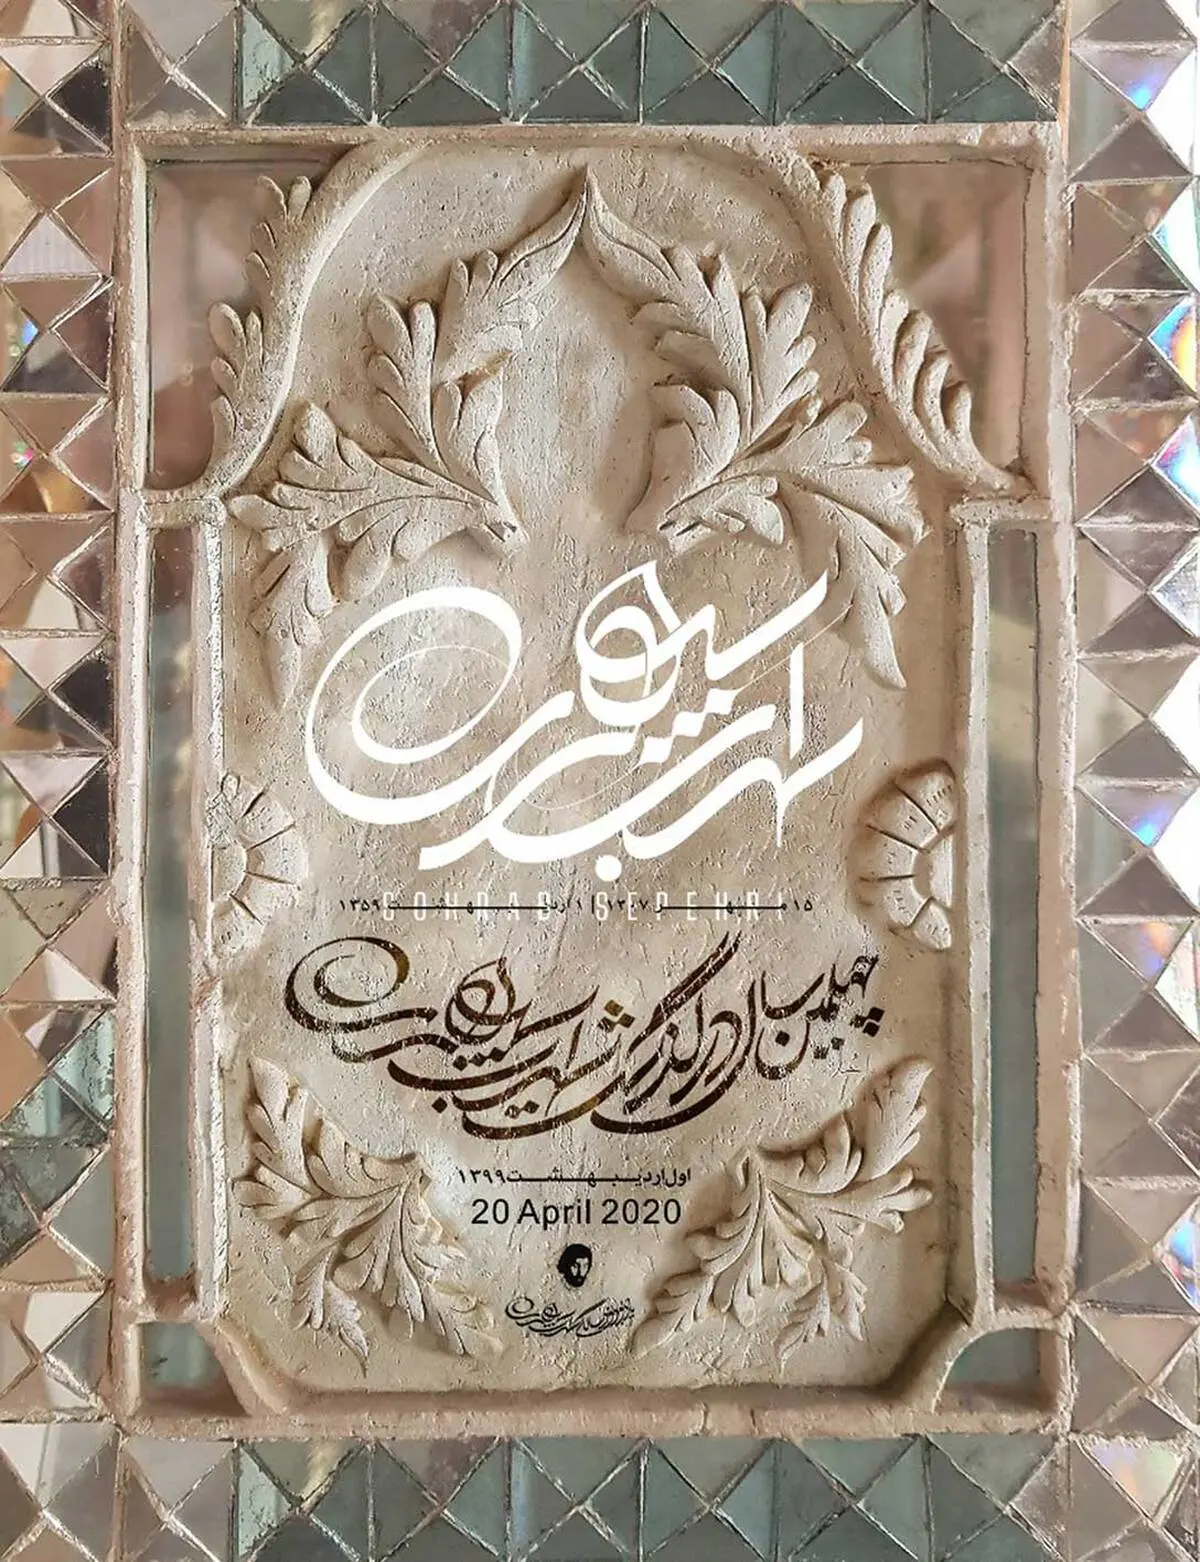 سهراب سپهری
SOHRAB SEPEHRI
۱۵ مهر ۱۳۰۷ | ۱ اردیبهشت ۱۳۵۹
چهلمین سال درگذشت سهراب سپهری
اول اردیبهشت ۱۳۹۹
20 April 2020